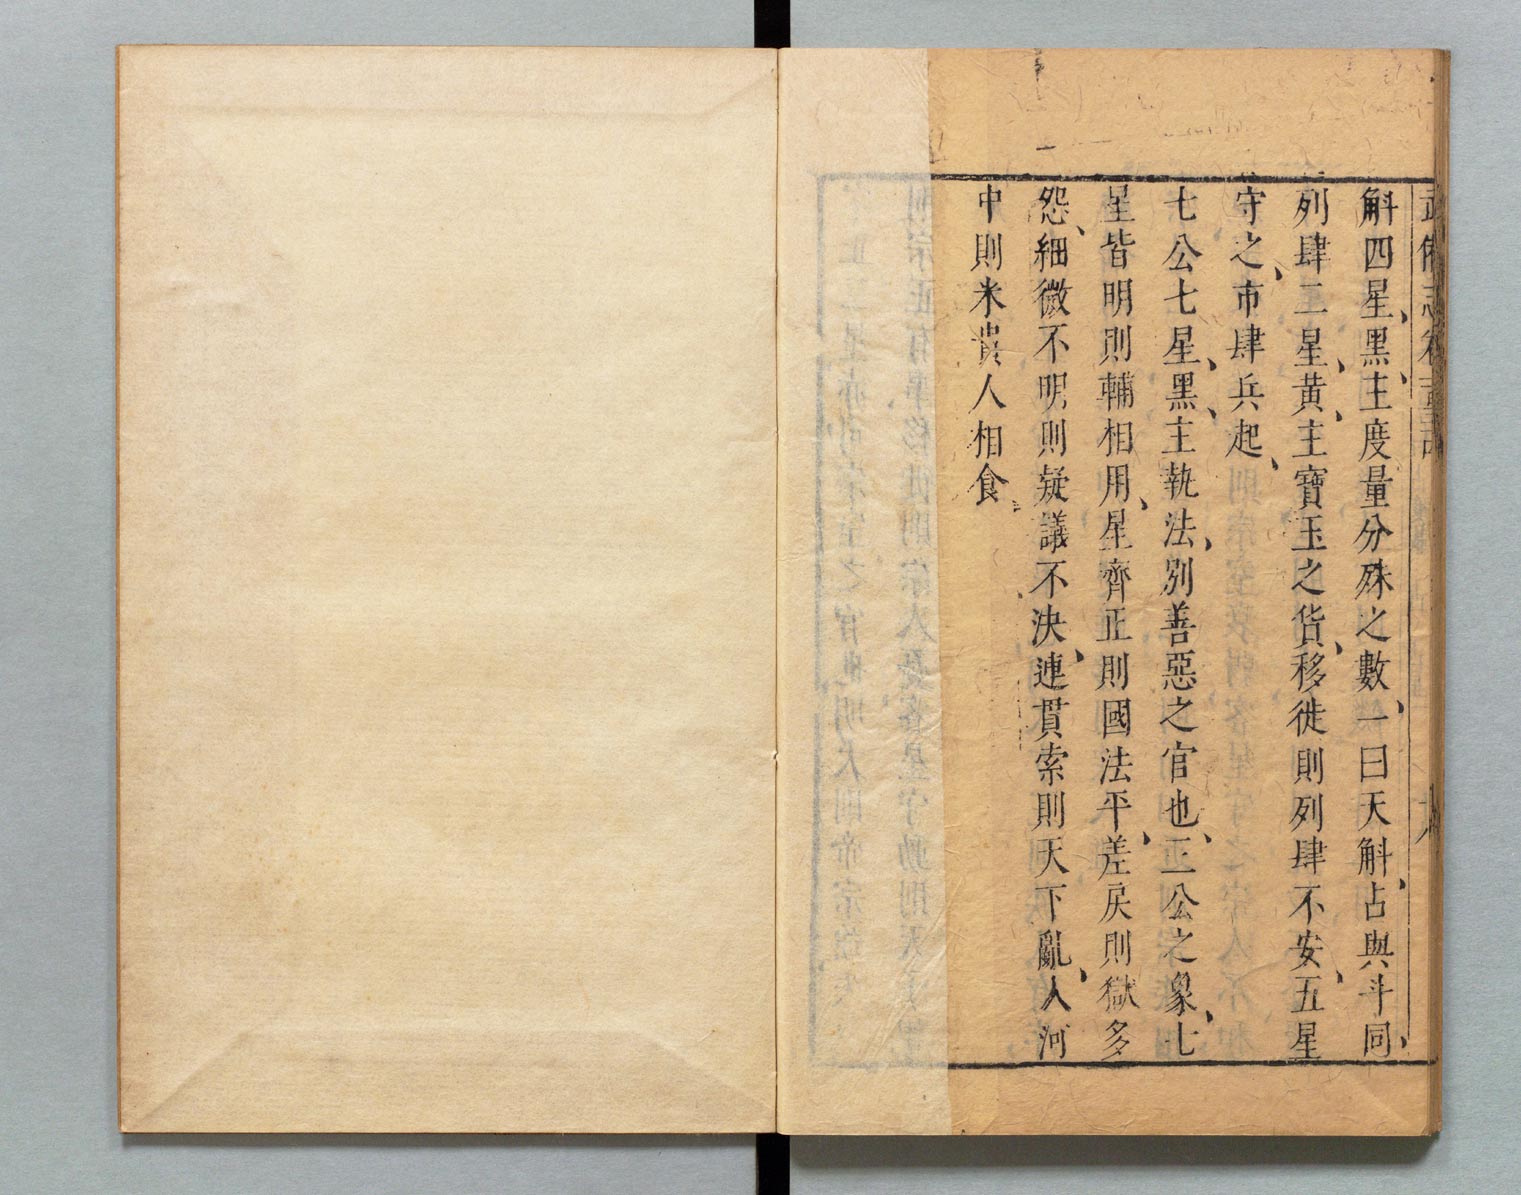 斛四星、黑、主度量分殊之數、一曰天斛、占與斗同、
列肆二星、黃、主寶玉之貨、移徙則列肆不安、五星
守之、市肆兵起、
七公七星、黑、主執法、別善惡之官也、三公之象、七
星皆明則輔相用、星齊正則國法平、差戾則獄多
怨、細微不明則疑議不決、連貫索則天下亂、入河
中則米貴人相食